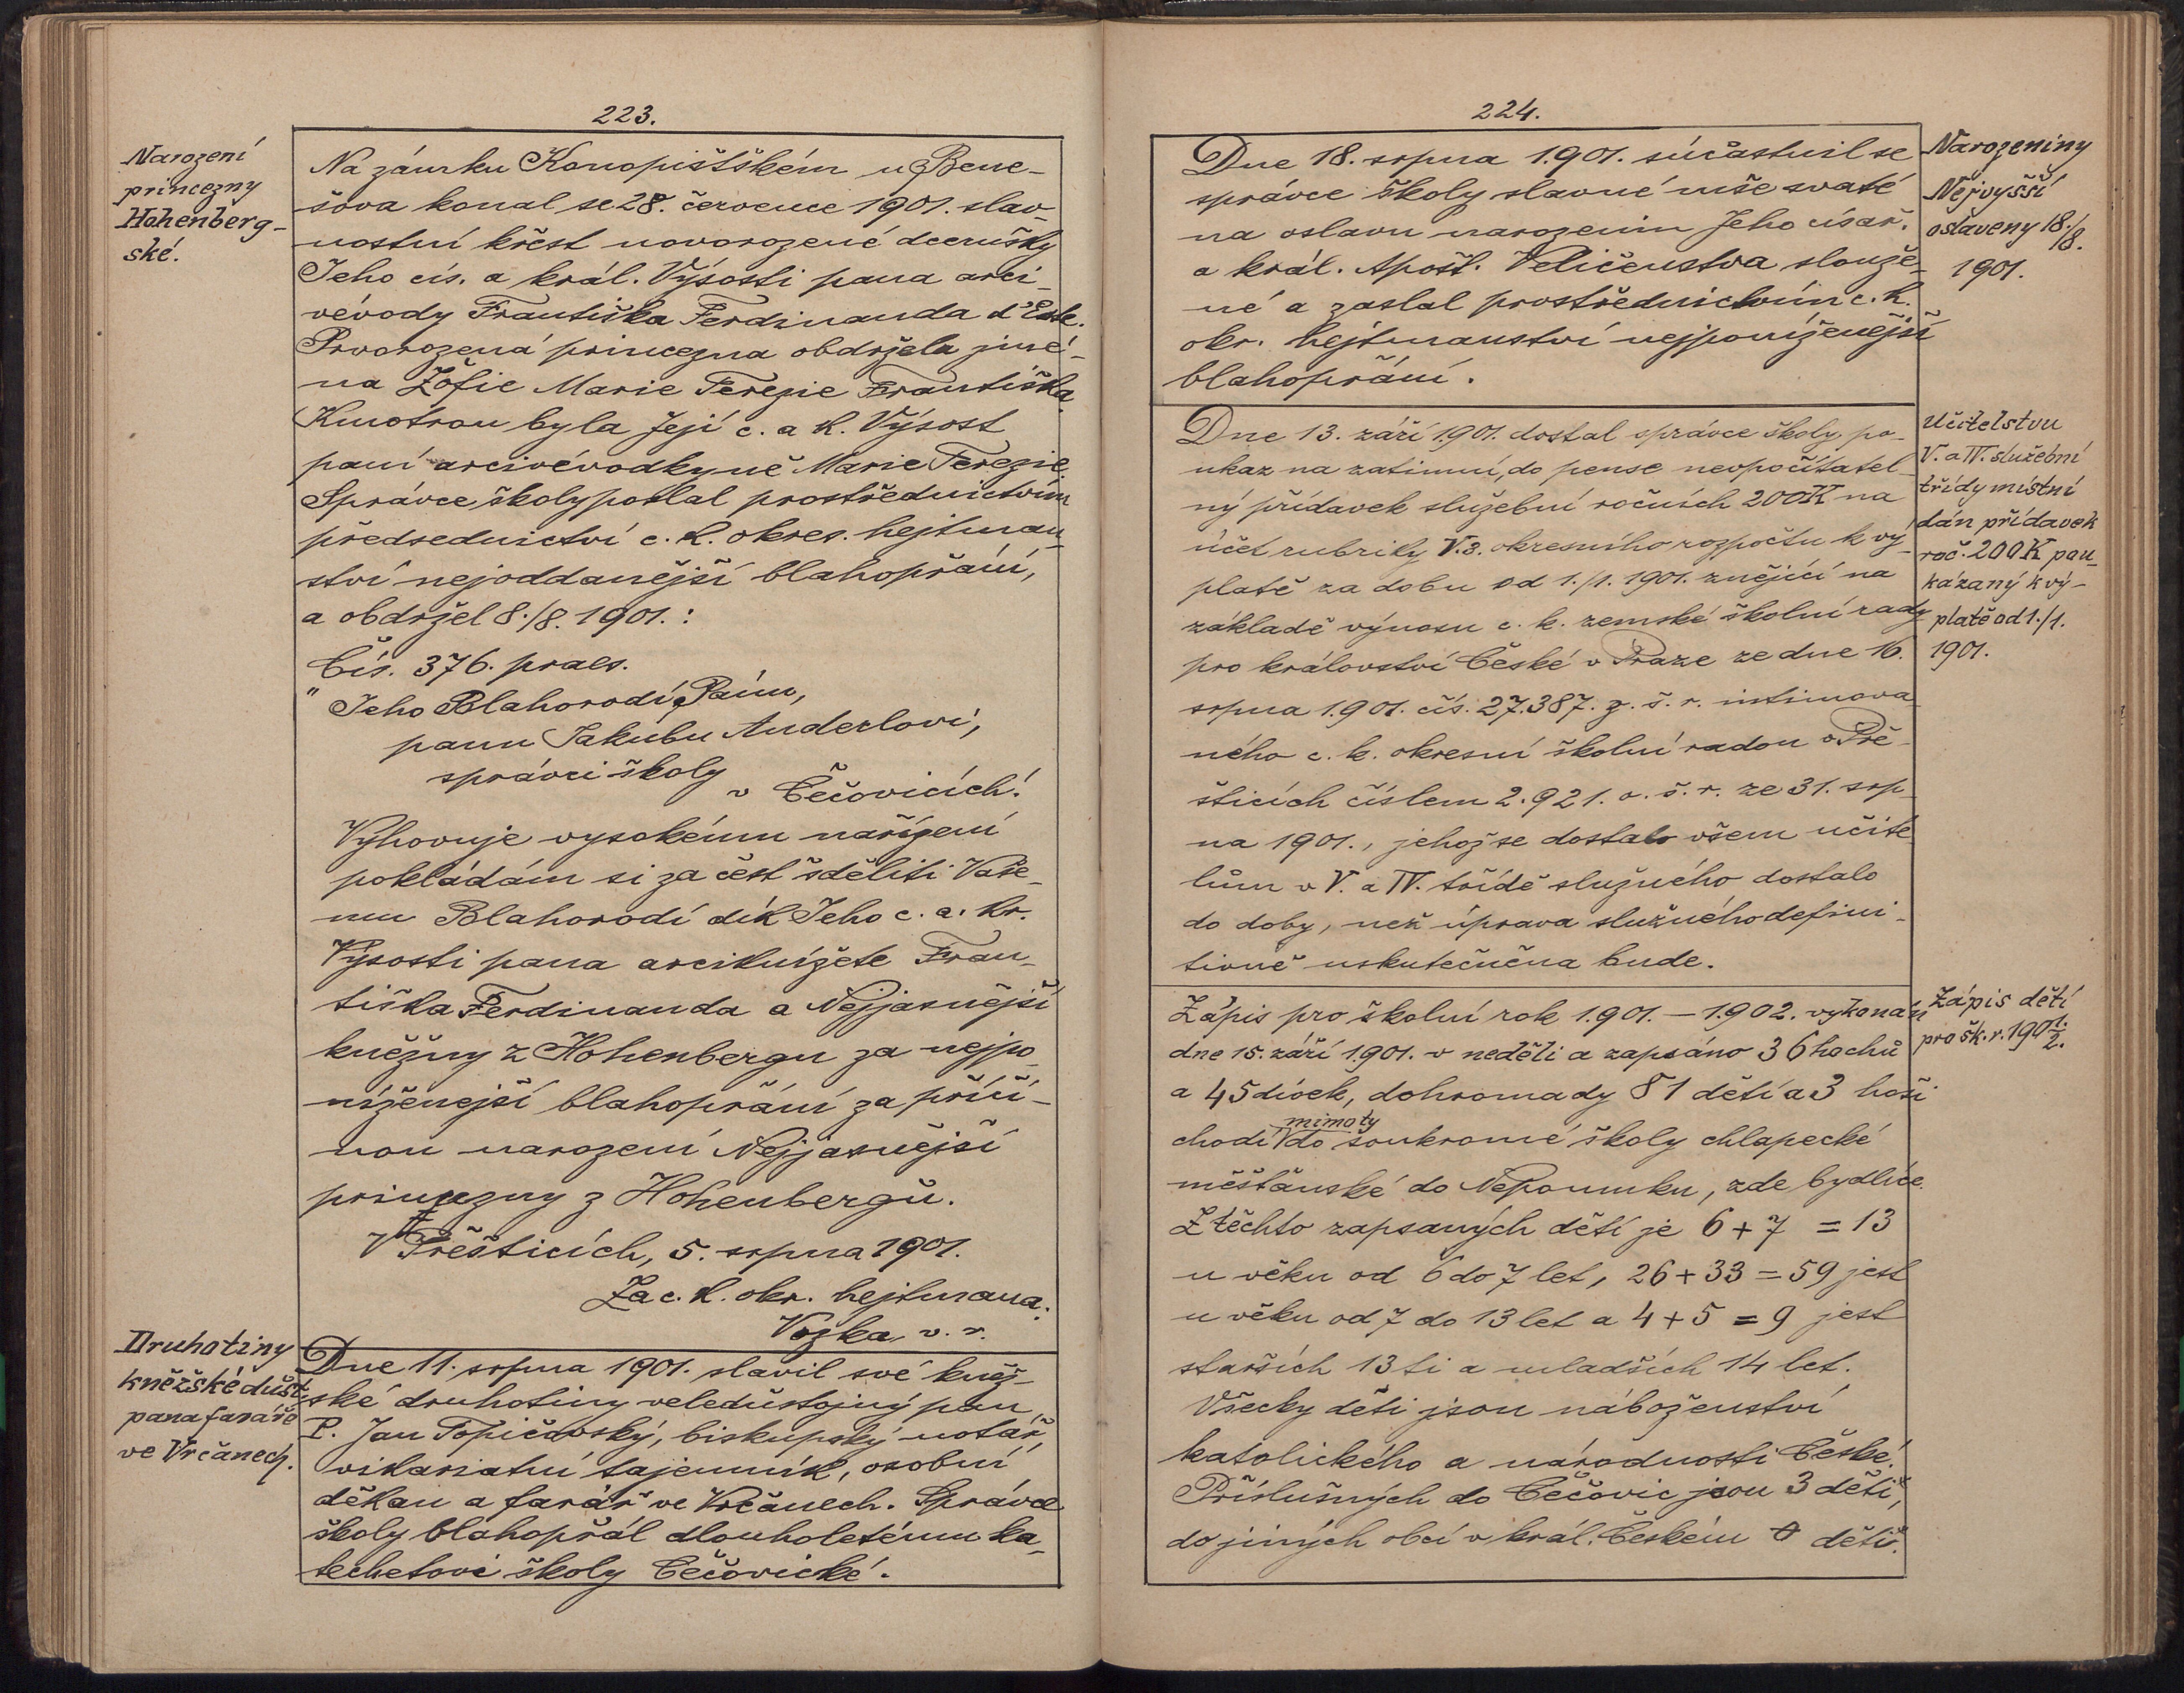 223.
Narození
princezny
Hohenberg-
ské.
Na zámku Konopištském u Bene-
šova konal se 28. července 1901. slav-
nostní křest novorozené dcerušky
Jeho cís. a král. Výsosti pana arci-
vévody Františka Ferdinanda d'Este.
Prvorozená princezna obdržela jmé-
na Žofie Marie Terezie Františka.
Kmotrou byla Její c. a k. Výsost
paní arcivévodkyně Marie Terezie.
Správce školy poslal prostřednictvím
předsednictví c. k. okres. hejtman-
ství nejoddanější blahopřání,
a obdržel 8./8. 1901.:
Čís. 376. praes.
"Jeho Blahorodí, Pánu,
panu Jakubu Anderlovi,
správci školy
v Čečovicích!
Vyhovuje vysokému nařízení
pokládám si za čest sděliti Vaše-
mu Blahorodí dík Jeho c. a. kr.
Výsosti pana arciknížete Fran-
tiška Ferdinanda a Nejjasnější
kněžny z Hohenbergu za nejpo-
níženejší blahopřání za příči-
nou narození Nejjasnější
princezny z Hohenbergů.
V Přešticích, 5. srpna 1901.
Za c. k. okr. hejtmana:
Vozka, v. r.
Druhotiny
kněžské důst.
pana faráře
ve Vrčanech.
Dne 11. srpna 1901. slavil své kněž-
ské druhotiny veledůstojný pan
P. Jan Topičovský, biskupský notář,
vikariatní tajemník, osobní
děkan a farář ve Vrčanech. Správce
školy blahopřál dlouholetému ka-
techetovi školy Čečovické.
224.
Dne 18. srpna 1901. súčastnil se
správce školy slavné mše svaté
na oslavu narozenin Jeho císař.
a král. Apošt. Veličenstva slouže-
né a zaslal prostřednictvím c. k.
okr. hejtmanství nejponíženější
blahopřání.
Narozeniny
Nejvyšší
oslaveny 18./8.
1901.
Dne 13. září 1901. dostal správce školy po-
ukaz na zatimní, do pense nepočítatel-
ný přídavek služební ročních 200K na
účet rubriky V.3. okresního rozpočtu k vý-
platě za dobu od 1./1. 1901. znějící na
základě výnosu c. k. zemské školní rady
pro království České v Praze ze dne 16.
srpna 1901. čís. 27.387. z. š. r. intimova-
ného c. k. okresní školní radou v Pře-
šticích číslem 2.921. o. š. r. ze 31. srp-
na 1901., jehož se dostalo všem učite-
lům v V. a IV. třídě služného dostalo
do doby, než úprava služného defini-
tivně uskutečněna bude.
Učitelstvu
V. a IV. služební
třídy místní
dán přídavek
roč. 200K pou-
kázaný k vý-
platě od 1./1.
1901.
Zápis pro školní rok 1901. — 1902. vykonán
dne 15. září 1901. v neděli a zapsáno 36 hochů
a 45 dívek, dohromady 81 dětí a 3 hoši
chodí mimo ty do soukromé školy chlapecké
měšťanské do Nepomuku, zde bydlíce.
Z těchto zapsaných dětí je 6 + 7 = 13
u věku od 6 do 7 let, 26 + 33 = 59 jest
u věku od 7 do 13 let a 4 + 5 = 9 jest
starších 13ti a mladších 14 let.
Všecky děti jsou náboženství
katolického a národnosti České.
Příslušných do Čečovic jsou 3 děti,
do jiných obcí v král. Českém 0 dětí.
Zápis dětí
pro šk. r. 1901./2.